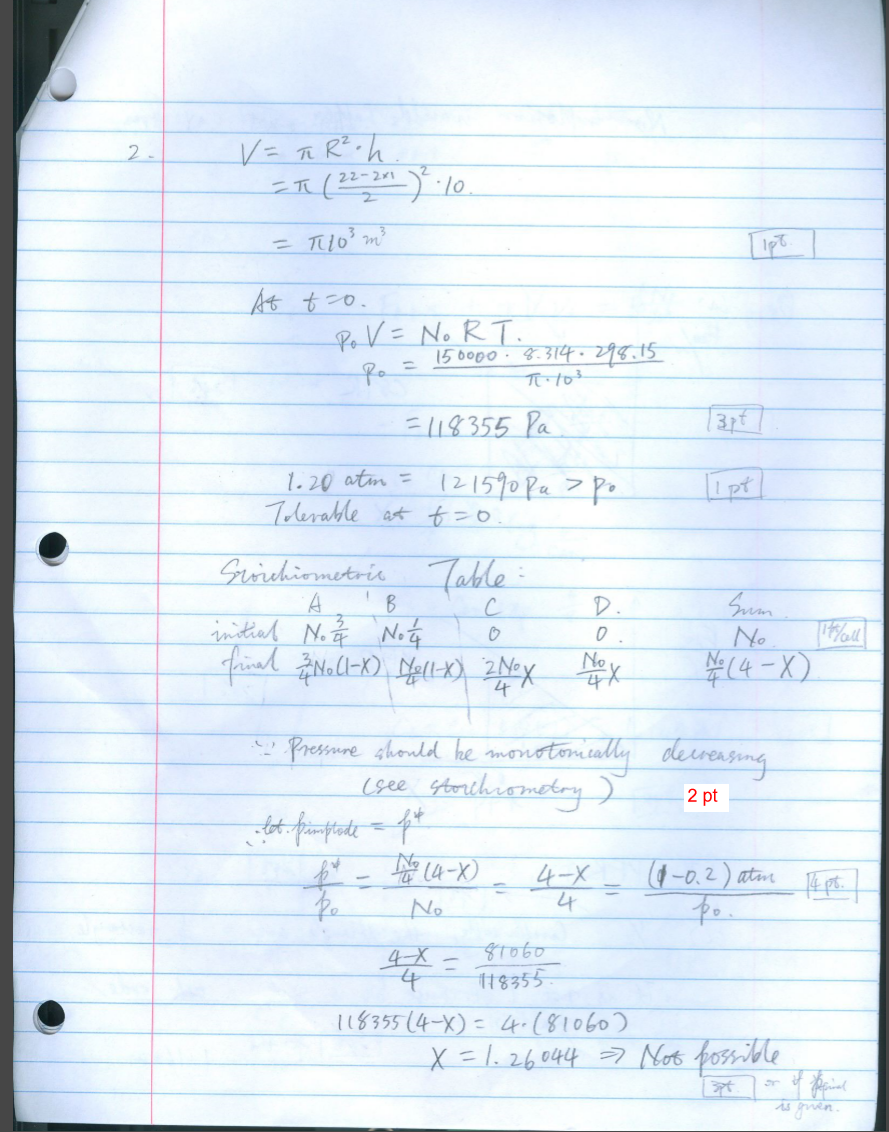 2.
V = π R² · h.
= π ( (22 - 2x1) / 2 )² · 10.
= π 10³ m³
1pt.
At t=0.
P₀ V = N₀ R T.
P₀ = (150000 · 8.314 · 298.15) / (π · 10³)
= 118355 Pa
3pt
1.20 atm = 121590 Pa > P₀
1 pt
Tolerable at t=0.
Stoichiometric Table:
A B C D. Sum
initial N₀ 3/4 N₀ 1/4 0 0. N₀
final 3/4 N₀(1-X) N₀/4 (1-X) 2N₀/4 X N₀/4 X N₀/4 (4 - X)
∵ Pressure should be monotonically decreasing
(see stoichiometry)
2 pt
∴ let Pimplode = P*
P*/P₀ = (N₀/4 (4-X)) / N₀ = (4-X)/4 = ((1-0.2) atm) / P₀.
4 pt.
(4-X)/4 = 81060 / 118355.
118355(4-X) = 4·(81060)
X = 1.26044 ⇒ Not possible
3pt. or if Pfinal
is given.